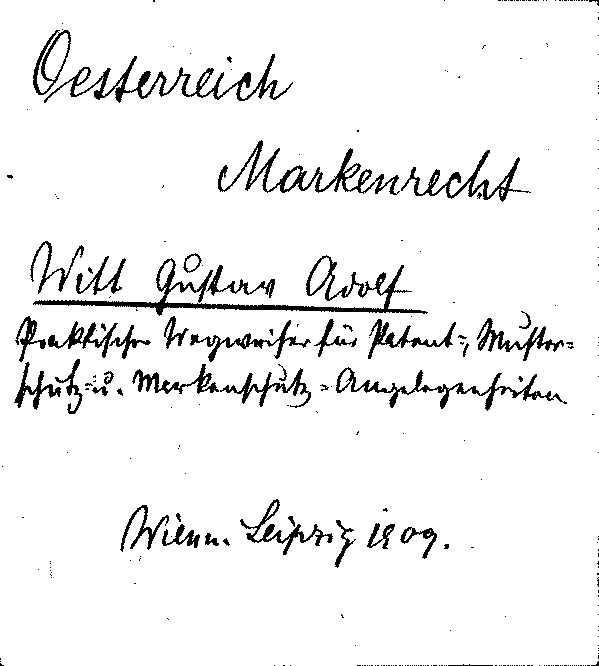 Oesterreich
Markenrecht
Witt Gustav Adolf
Praktischer Wegweiser für Patent-, Muster-
schutz- u. Markenschutz-Angelegenheiten
Wien u. Leipzig 1909.